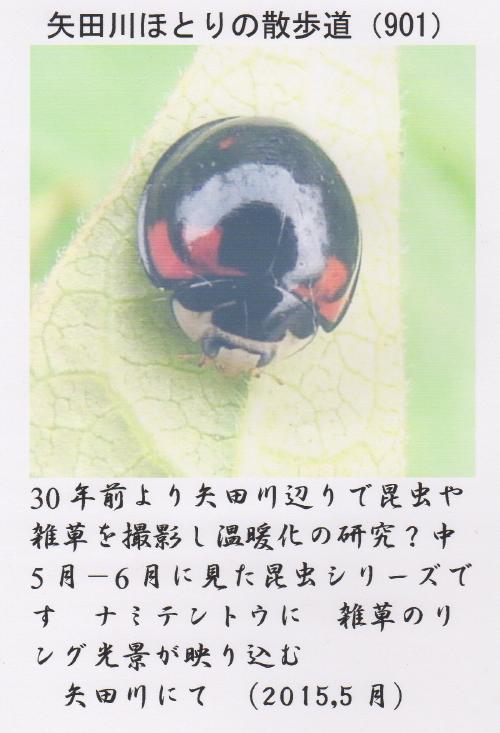 矢田川ほとりの散歩道（901）
30年前より矢田川辺りで昆虫や
雑草を撮影し温暖化の研究？中
5月－6月に見た昆虫シリーズで
す　ナミテントウに　雑草のリ
ング光景が映り込む
矢田川にて　（2015,5月）